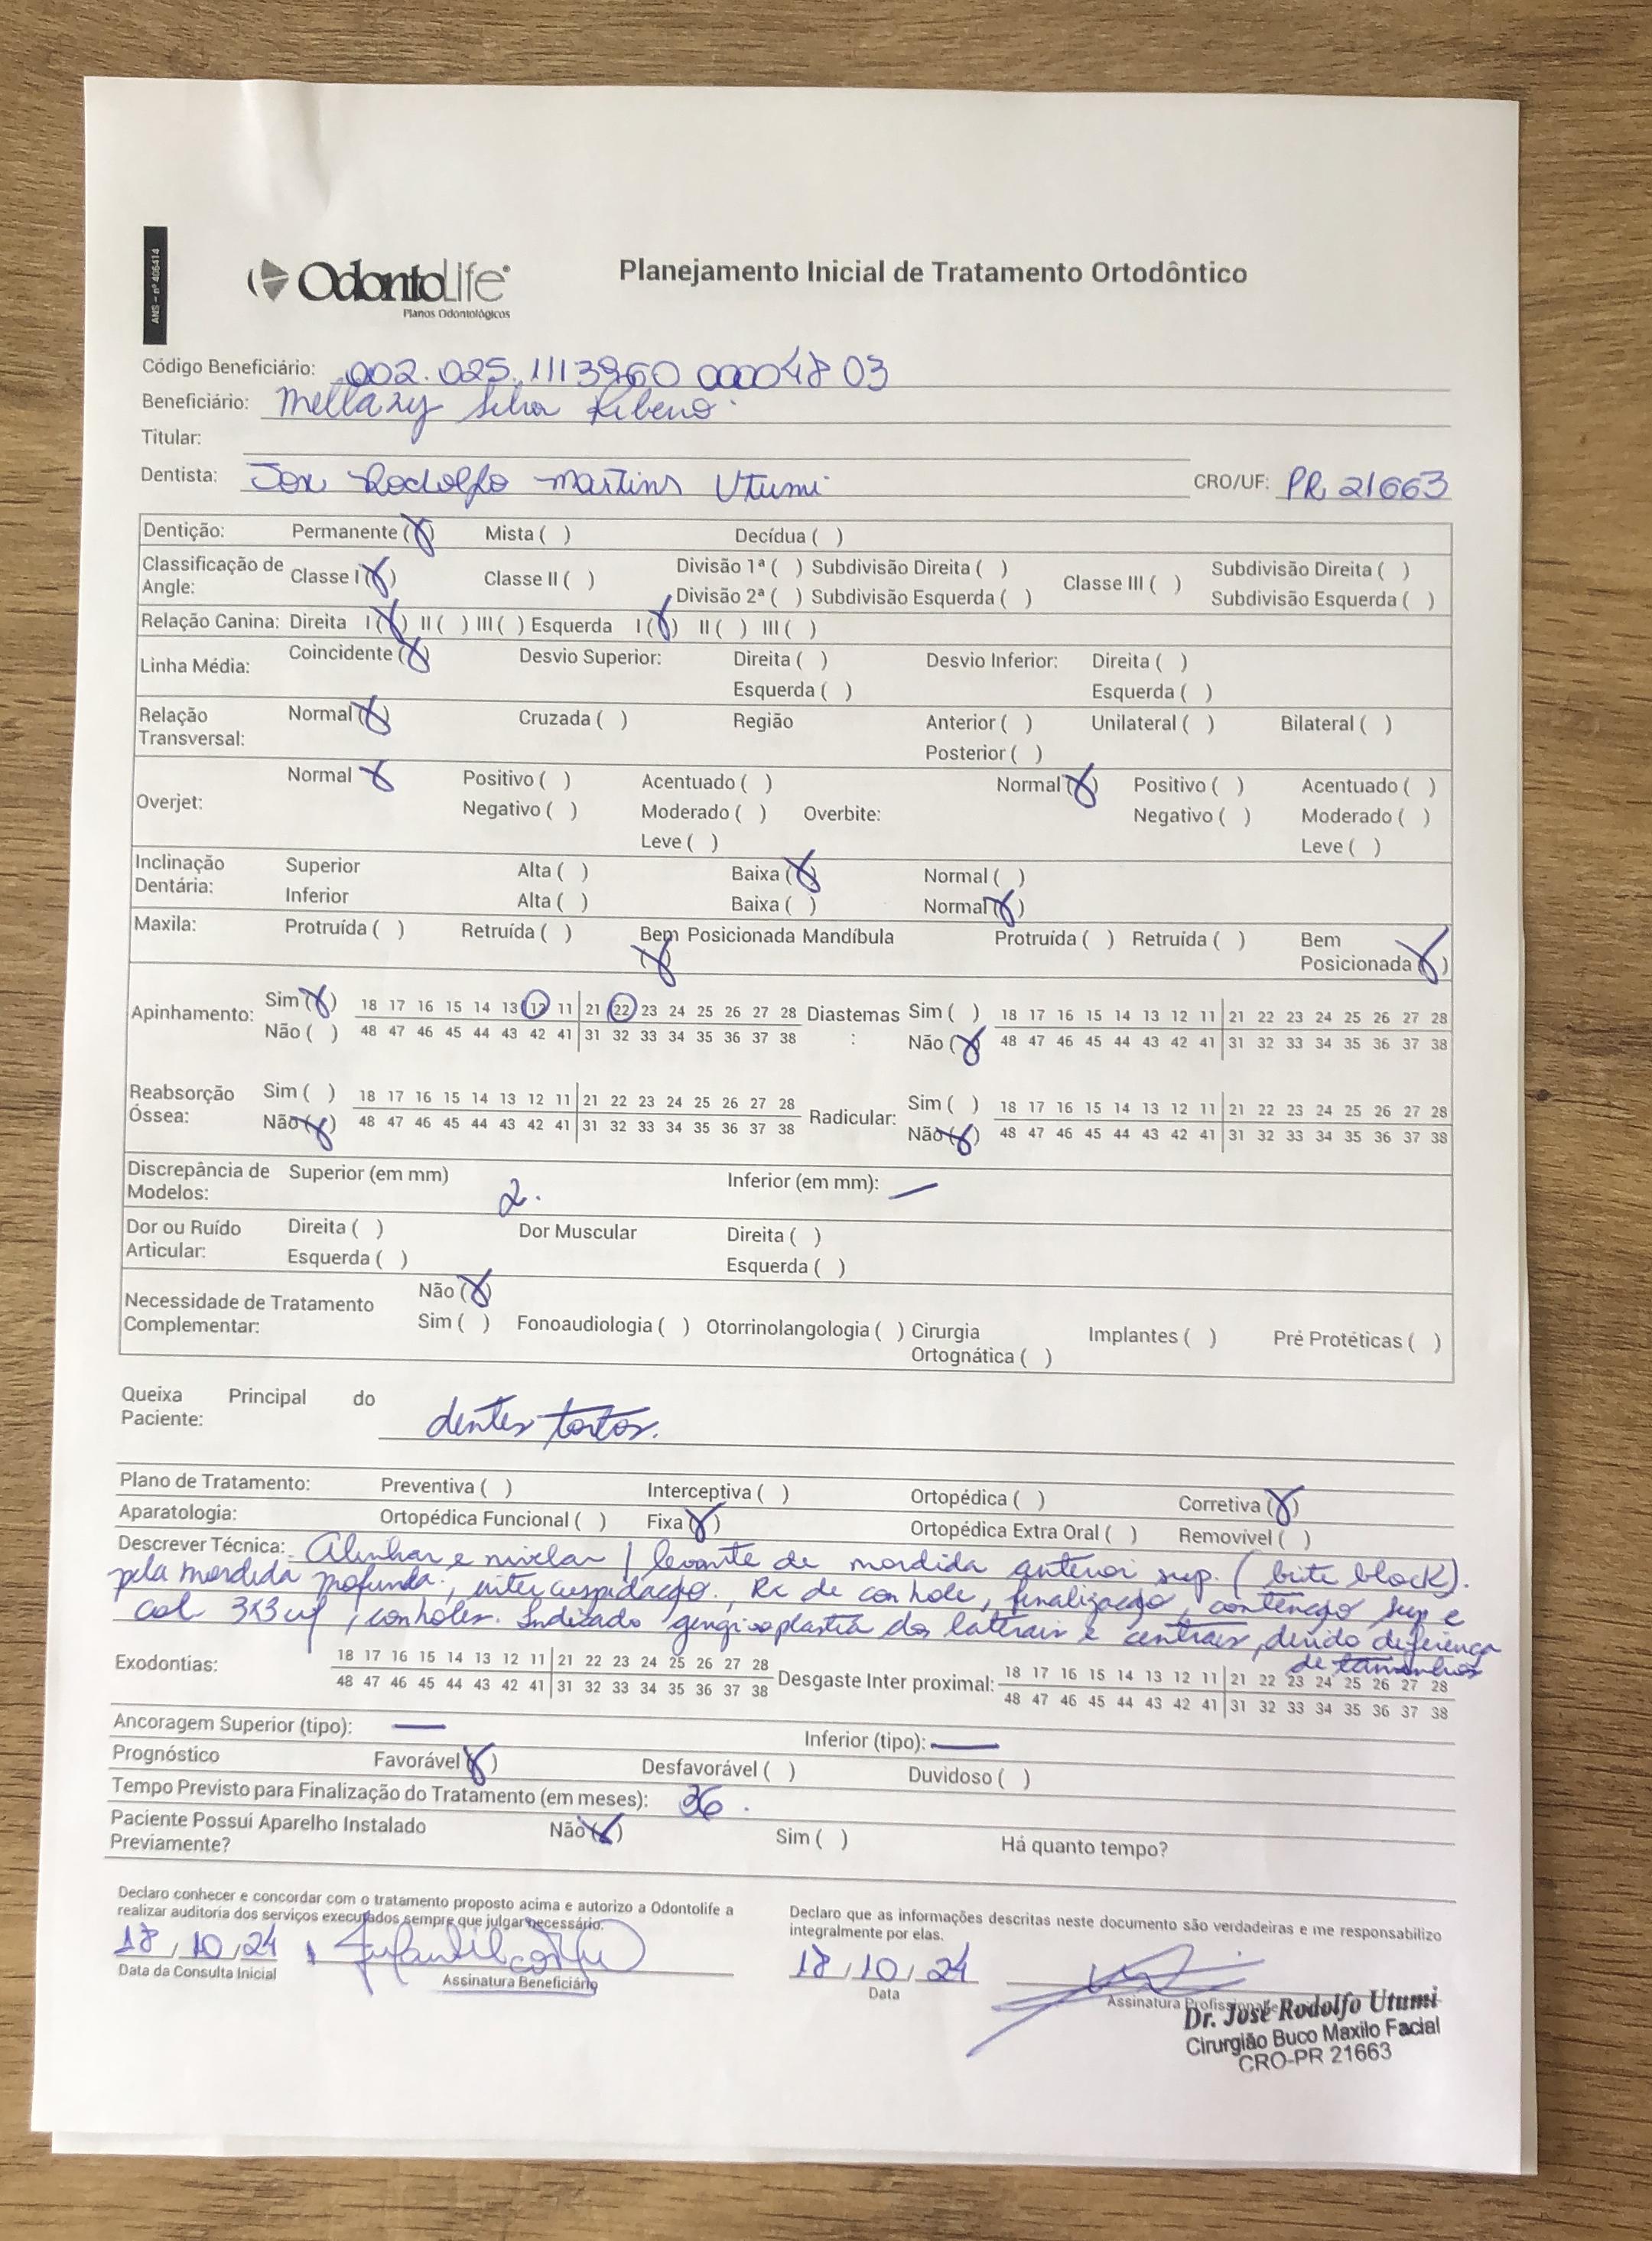 ANS - nº 406414
OdontoLife®
Planos Odontológicos
Planejamento Inicial de Tratamento Ortodôntico
Código Beneficiário: 002.025.1113960 00004803
Beneficiário: Mellany Silva Ribeiro
Titular:
Dentista: Jose Rodolfo Martins Utumi CRO/UF: PR 21663
Dentição: Permanente (X) Mista ( ) Decídua ( )
Classificação de Angle: Classe I (X) Classe II ( ) Divisão 1ª ( ) Subdivisão Direita ( ) Classe III ( ) Subdivisão Direita ( )
Divisão 2ª ( ) Subdivisão Esquerda ( ) Subdivisão Esquerda ( )
Relação Canina: Direita I (X) II ( ) III ( ) Esquerda I (X) II ( ) III ( )
Linha Média: Coincidente (X) Desvio Superior: Direita ( ) Desvio Inferior: Direita ( )
Esquerda ( ) Esquerda ( )
Relação Transversal: Normal (X) Cruzada ( ) Região Anterior ( ) Unilateral ( ) Bilateral ( )
Posterior ( )
Overjet: Normal X Positivo ( ) Acentuado ( ) Overbite: Normal (X) Positivo ( ) Acentuado ( )
Negativo ( ) Moderado ( ) Negativo ( ) Moderado ( )
Leve ( ) Leve ( )
Inclinação Dentária: Superior Alta ( ) Baixa (X) Normal ( )
Inferior Alta ( ) Baixa ( ) Normal (X)
Maxila: Protruída ( ) Retruída ( ) Bem Posicionada (X) Mandíbula Protruída ( ) Retruída ( ) Bem Posicionada (X)
Apinhamento: Sim (X) 18 17 16 15 14 13 12 11 21 22 23 24 25 26 27 28 Diastemas : Sim ( ) 18 17 16 15 14 13 12 11 21 22 23 24 25 26 27 28
Não ( ) 48 47 46 45 44 43 42 41 31 32 33 34 35 36 37 38 Não (X) 48 47 46 45 44 43 42 41 31 32 33 34 35 36 37 38
Reabsorção Óssea: Sim ( ) 18 17 16 15 14 13 12 11 21 22 23 24 25 26 27 28 Radicular: Sim ( ) 18 17 16 15 14 13 12 11 21 22 23 24 25 26 27 28
Não (X) 48 47 46 45 44 43 42 41 31 32 33 34 35 36 37 38 Não (X) 48 47 46 45 44 43 42 41 31 32 33 34 35 36 37 38
Discrepância de Modelos: Superior (em mm) 2. Inferior (em mm): —
Dor ou Ruído Articular: Direita ( ) Dor Muscular Direita ( )
Esquerda ( ) Esquerda ( )
Necessidade de Tratamento Complementar: Não (X)
Sim ( ) Fonoaudiologia ( ) Otorrinolangologia ( ) Cirurgia Ortognática ( ) Implantes ( ) Pré Protéticas ( )
Queixa Principal do Paciente: dentes tortos.
Plano de Tratamento: Preventiva ( ) Interceptiva ( ) Ortopédica ( ) Corretiva (X)
Aparatologia: Ortopédica Funcional ( ) Fixa (X) Ortopédica Extra Oral ( ) Removível ( )
Descrever Técnica: Alinhar e nivelar / levante de mordida anterior sup. (bite block).
pela mordida profunda, intercuspidação. Rx de controle, finalização, contenção sup e
col 3x3 inf, controles. Indicado gengivoplastia dos laterais e centrais, devido diferença
de tamanhos
Exodontias: 18 17 16 15 14 13 12 11 21 22 23 24 25 26 27 28 Desgaste Inter proximal: 18 17 16 15 14 13 12 11 21 22 23 24 25 26 27 28
48 47 46 45 44 43 42 41 31 32 33 34 35 36 37 38 48 47 46 45 44 43 42 41 31 32 33 34 35 36 37 38
Ancoragem Superior (tipo): — Inferior (tipo): —
Prognóstico Favorável (X) Desfavorável ( ) Duvidoso ( )
Tempo Previsto para Finalização do Tratamento (em meses): 36.
Paciente Possuí Aparelho Instalado Previamente? Não (X) Sim ( ) Há quanto tempo?
Declaro conhecer e concordar com o tratamento proposto acima e autorizo a Odontolife a
realizar auditoria dos serviços executados sempre que julgar necessário.
18 / 10 / 24
Data da Consulta Inicial Assinatura Beneficiário
Declaro que as informações descritas neste documento são verdadeiras e me responsabilizo
integralmente por elas.
18 / 10 / 24
Data Assinatura Profissional
Dr. José Rodolfo Utumi
Cirurgião Buco Maxilo Facial
CRO-PR 21663